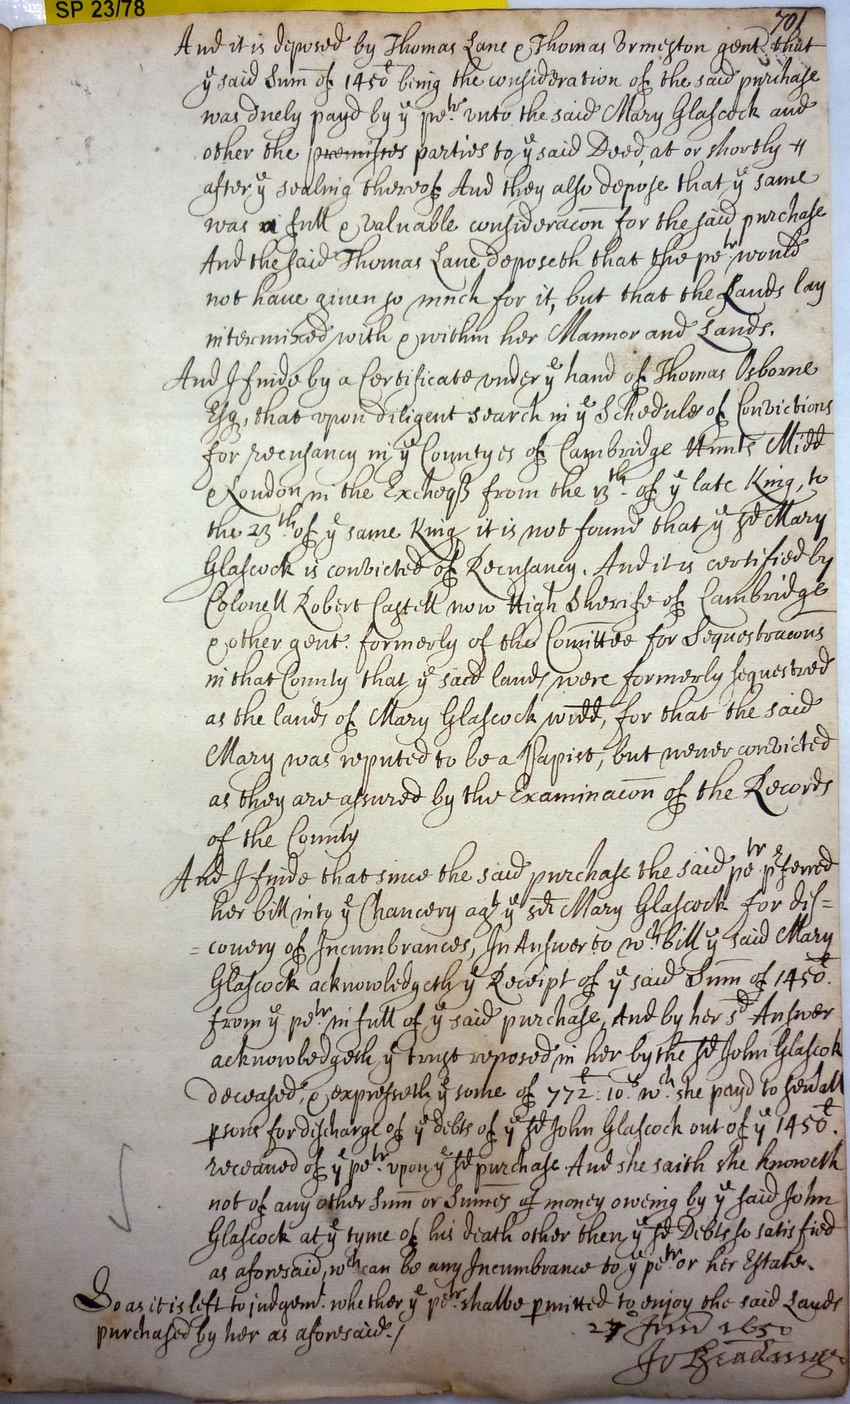 SP 23/78
701
And it is deposed by Thomas Lane & Thomas Urmeston gent. that
yᵉ said Sum̄ of 1450ˡ being the consideration of the said purchase
was duely payd by yᵉ petʳ unto the said Mary Glascock and
other the premisses parties to yᵉ said Deed, at or shortly
after yᵉ sealing thereof And they also depose that yᵉ same
was a full & valuable consideracōn for the said purchase
And the said Thomas Lane deposeth that the petʳ would
not have given so much for it, but that the Lands lay
intermixed with & within her Mannor and Lands.
And I finde by a Certificate under yᵉ hand of Thomas Osborne
Esq, that upon diligent search in yᵉ Schedules of Convictions
for recusancy in yᵉ Countyes of Cambridge Hunts Midd
& London in the Excheqʳ from the 13ᵗʰ of yᵉ late King, to
the 23ᵗʰ of yᵉ same King, it is not found that yᵉ sᵈ Mary
Glascock is convicted of Recusancy. And it is certified by
Colonell Robert Castell now High Sherife of Cambridge
& other gent. formerly of the Com̄ittee for Sequestracōns
in that County that yᵉ said lands were formerly sequestred
as the lands of Mary Glascock widd, for that the said
Mary was reputed to be a Papist, but never convicted
as they are assured by the Examinacōn of the Records
of the County
And I finde that since the said purchase the said petʳ pferred
her bill into yᵉ Chancery agᵗ yᵉ sᵈ Mary Glascock for dis=
=covery of Incumbrances, In Answer to wᶜʰ bill yᵉ said Mary
Glascock acknowledgeth yᵉ Receipt of yᵉ said Sum̄ of 1450ˡ.
from yᵉ petʳ in full of yᵉ said purchase, And by her sᵈ Answer
acknowledgeth yᵉ trust reposed in her by the sᵈ John Glascok
deceased, & expresseth yᵉ some of 772ˡ: 10ˢ wᶜʰ she payd to severall
psons for discharge of yᵉ debts of yᵉ sᵈ John Glascock out of yᵉ 1450ˡ.
receaued of yᵉ petʳ upon yᵉ sᵈ purchase. And she saith she knoweth
not of any other Sum̄ or Sum̄es of money oweing by yᵉ said John
Glascock at yᵉ tyme of his death other then yᵉ sᵈ Debts so satisfied
as aforesaid, wᶜʰ can be any Incumbrance to yᵉ petʳ or her Estate.
So as it is left to judgemᵗ. whether yᵉ petʳ shalbe pmitted to enjoy the said Lands
purchased by her as aforesaid./
27 Juni 1650
Jo Readinge